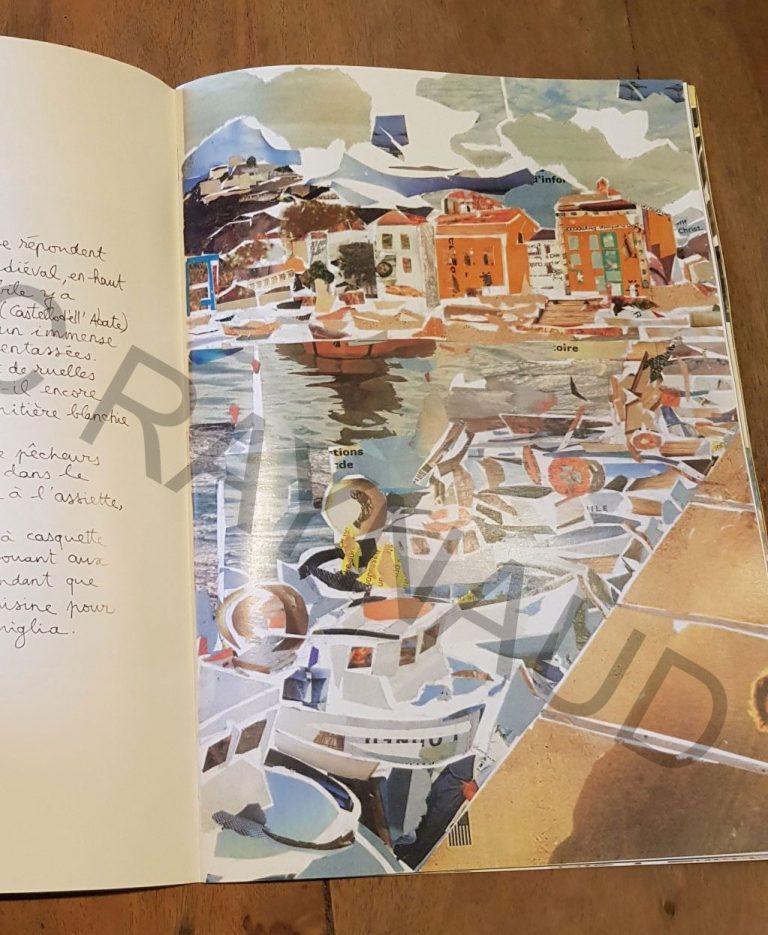 e répondent
diéval, en-haut
bile y a
(Castello dell'Abate)
un immense
entassées.
de ruelles
-il encore
mitière blanchie
e pêcheurs
dans le
à l'assiette,
à casquette
ouant aux
endant que
uisine pour
miglia.
d'infor
Christ.
toire
tions
de
ULE
C RAYNAUD